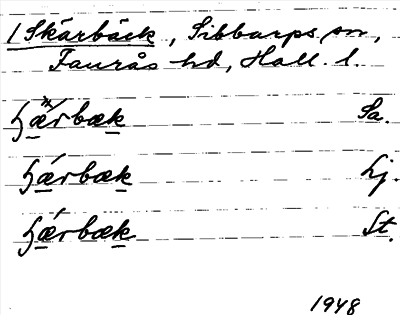 /Skärbäck, Sibbarps sn,
Faurås hd, Hall. l.
ɧærbæk Sa.
ɧærbæk Lj.
ɧærbæk St.
1948